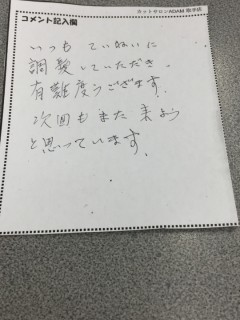 カットサロンADAM
コメント記入欄
いつも ていねいに
調髪していただき.
有難度うございます.
次回もまた 来よう
と思っています.